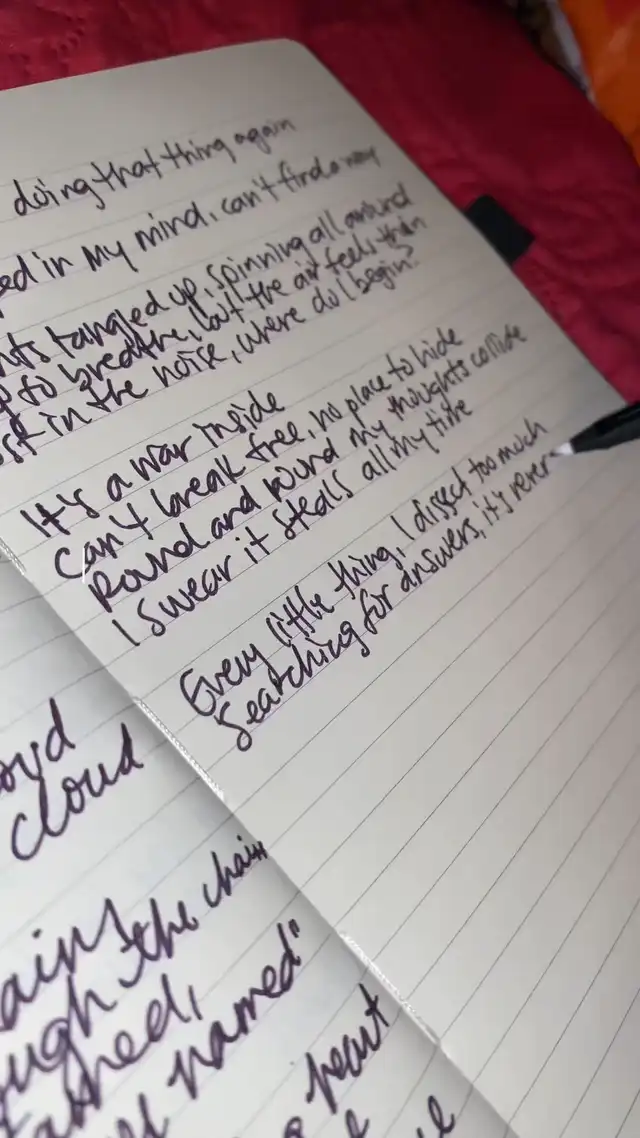 doing that thing again
ped in my mind, can't find a way
hts tangled up, spinning all around
to breathe, but the air feels thin
ost in the noise, where do I begin?
It's a war inside
Can't break free, no place to hide
Round and round my thoughts collide
I swear it steals all my time
Every little thing, I dissect too much
Searching for answers, it's never
oud
cloud
ains
ough the chain
named"
heart